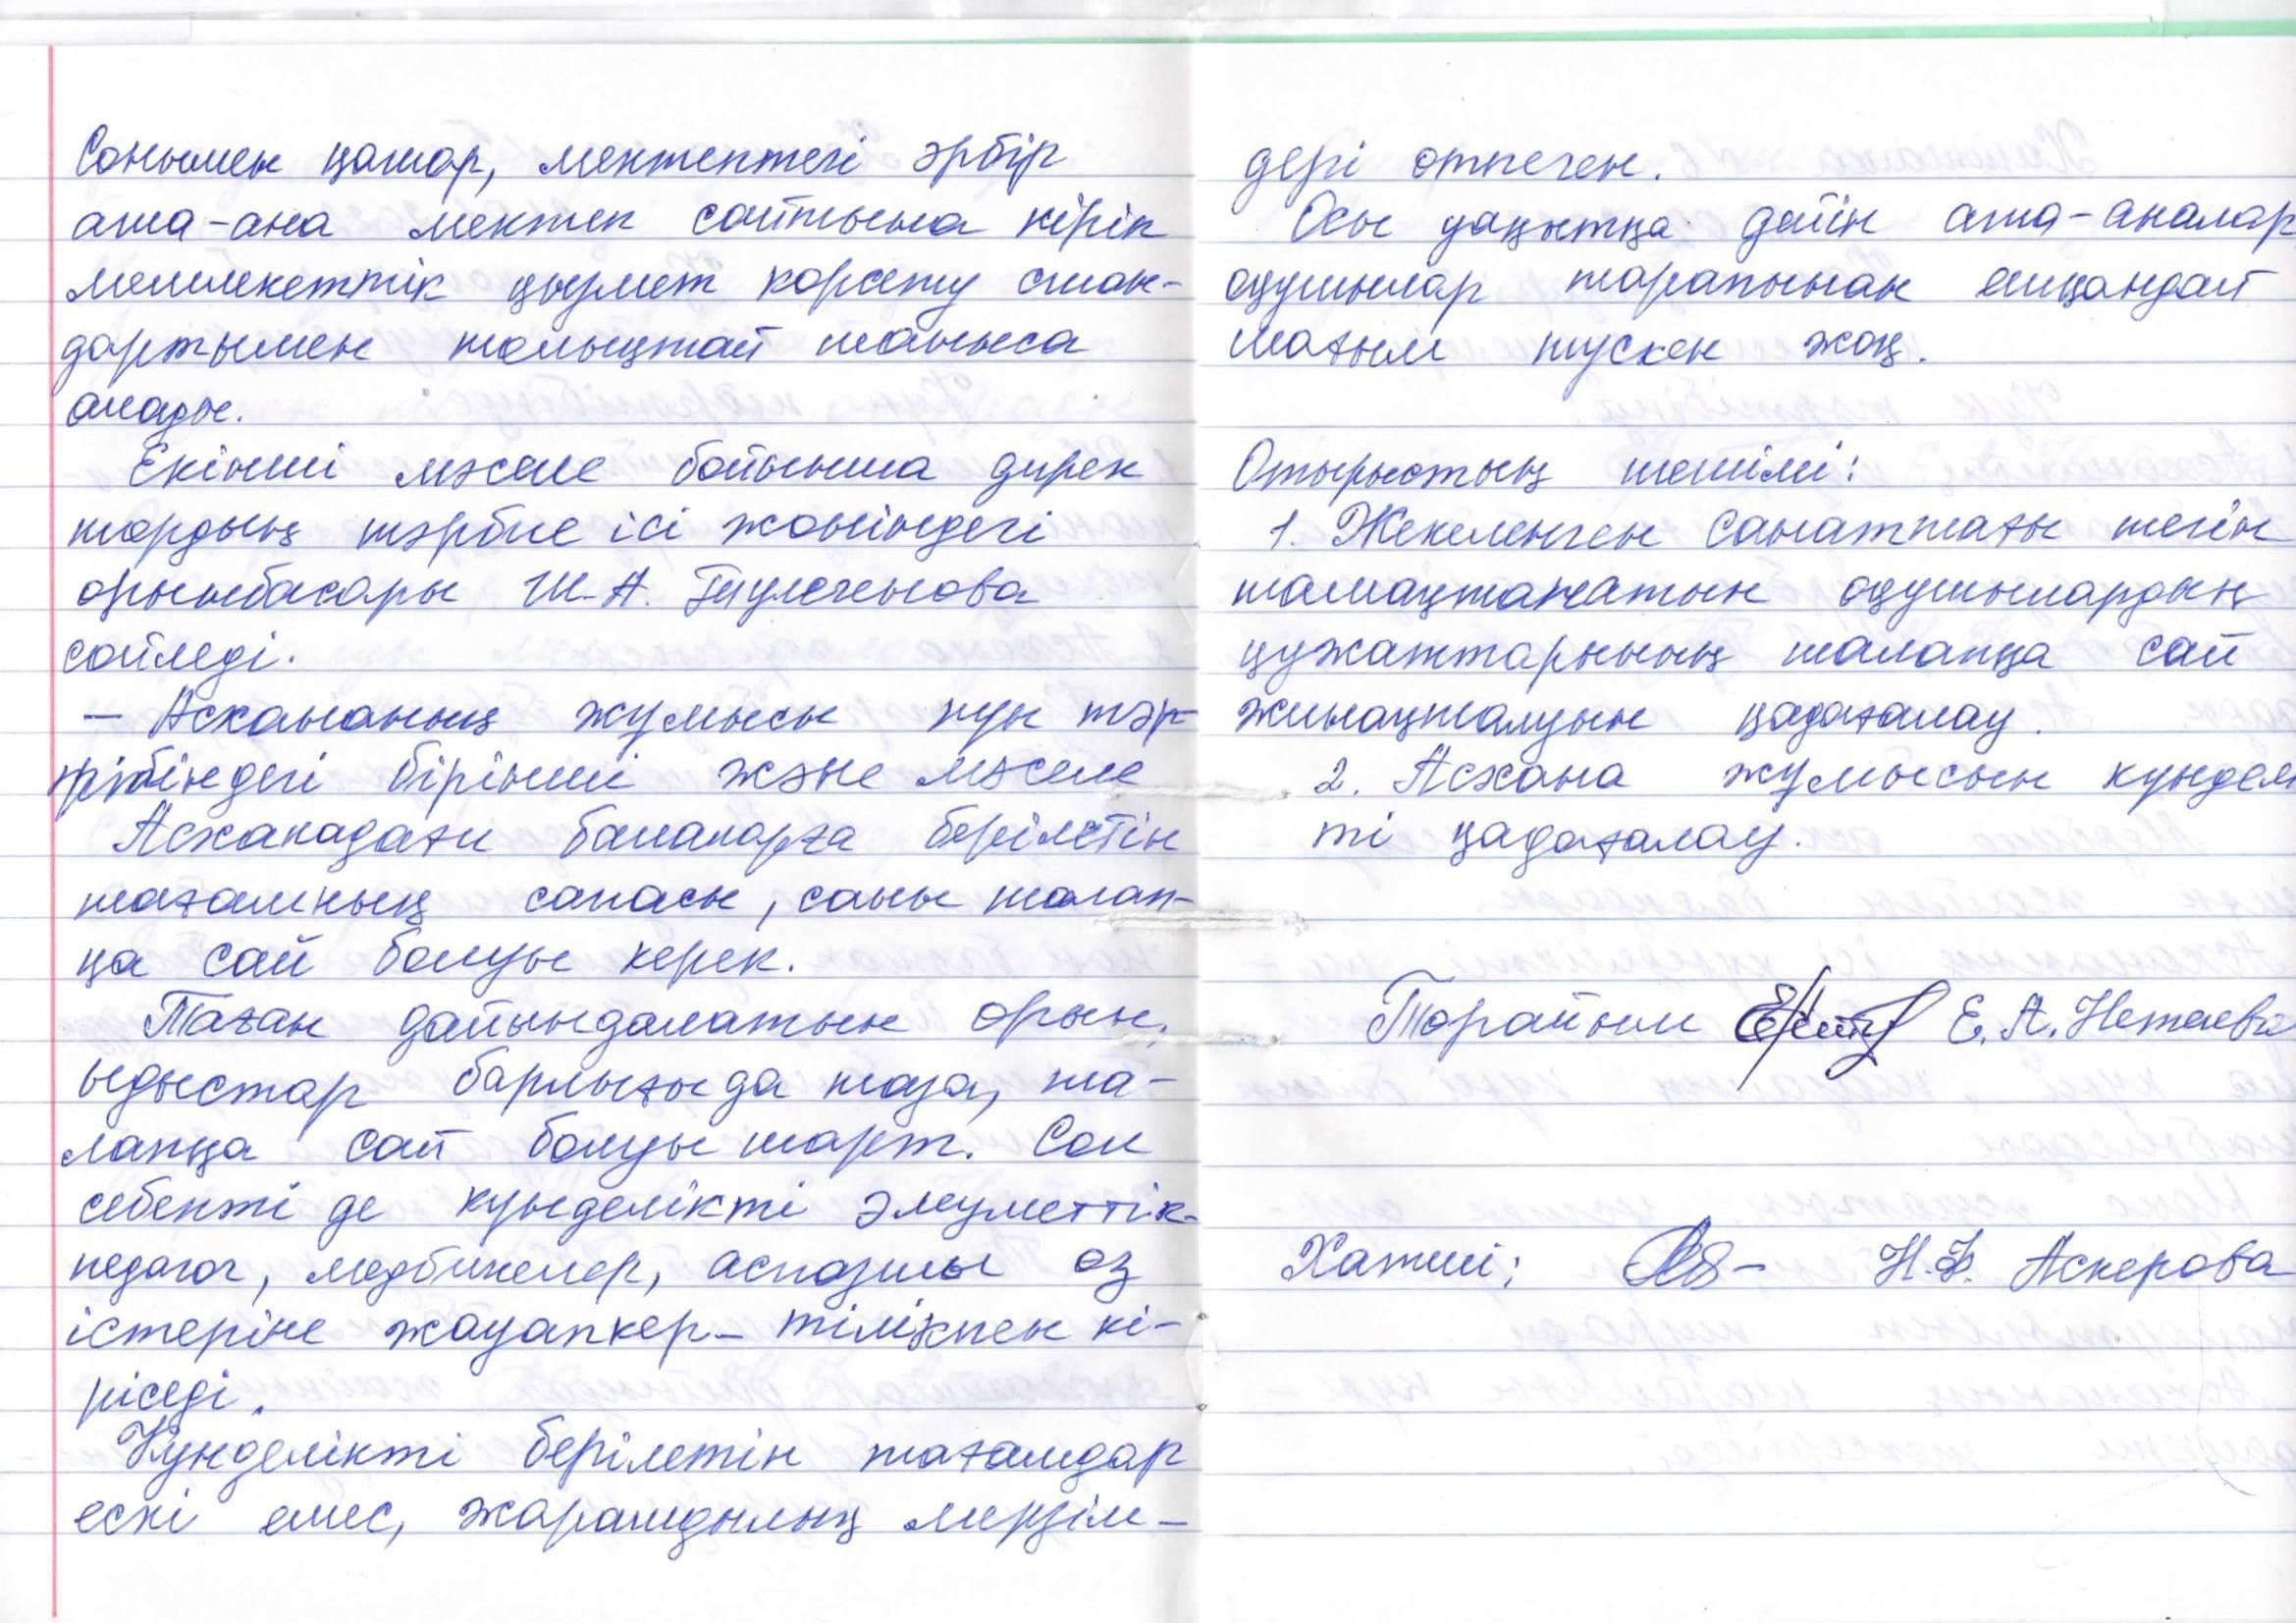 Сонымен қатар, мектептегі әрбір
ата-ана мектеп сайтына кіріп
мемлекеттік қызмет көрсету стан-
дартымен толықтай таныса
алады.
Екінші мәселе бойынша дирек
тордың тәрбие ісі жөніндегі
орынбасары Ш.А. Тулегенова
сөйледі.
– Асхананың жұмысы күн тәр-
тібіндегі бірінші және мәселе
Асханадағы балаларға берілетін
тағамның сапасы, саны талап-
қа сай болуы керек.
Тағам дайындалатын орын,
ыдыстар барлығы да таза, та-
лапқа сай болуы шарт. Сол
себепті де күнделікті әлеуметтік-
педагог, медбикелер, аспазшы өз
істеріне жауапкер-тілікпен кі-
ріседі.
Күнделікті берілетін тағамдар
ескі емес, жарамдылық мерзім-
дері өтпеген.
Осы уақытқа дейін ата-аналар
оқушылар тарапынан ешқандай
шағым түскен жоқ.
Отырыстың шешімі:
1. Жекеленген санаттағы тегін
тамақтанатын оқушылардың
құжаттарының талапқа сай
жинақталуын қадағалау.
2. Асхана жұмысын күндел
ті қадағалау.
Төрайым Е.А. Нетаева
Хатші: Н.Ф. Аскерова